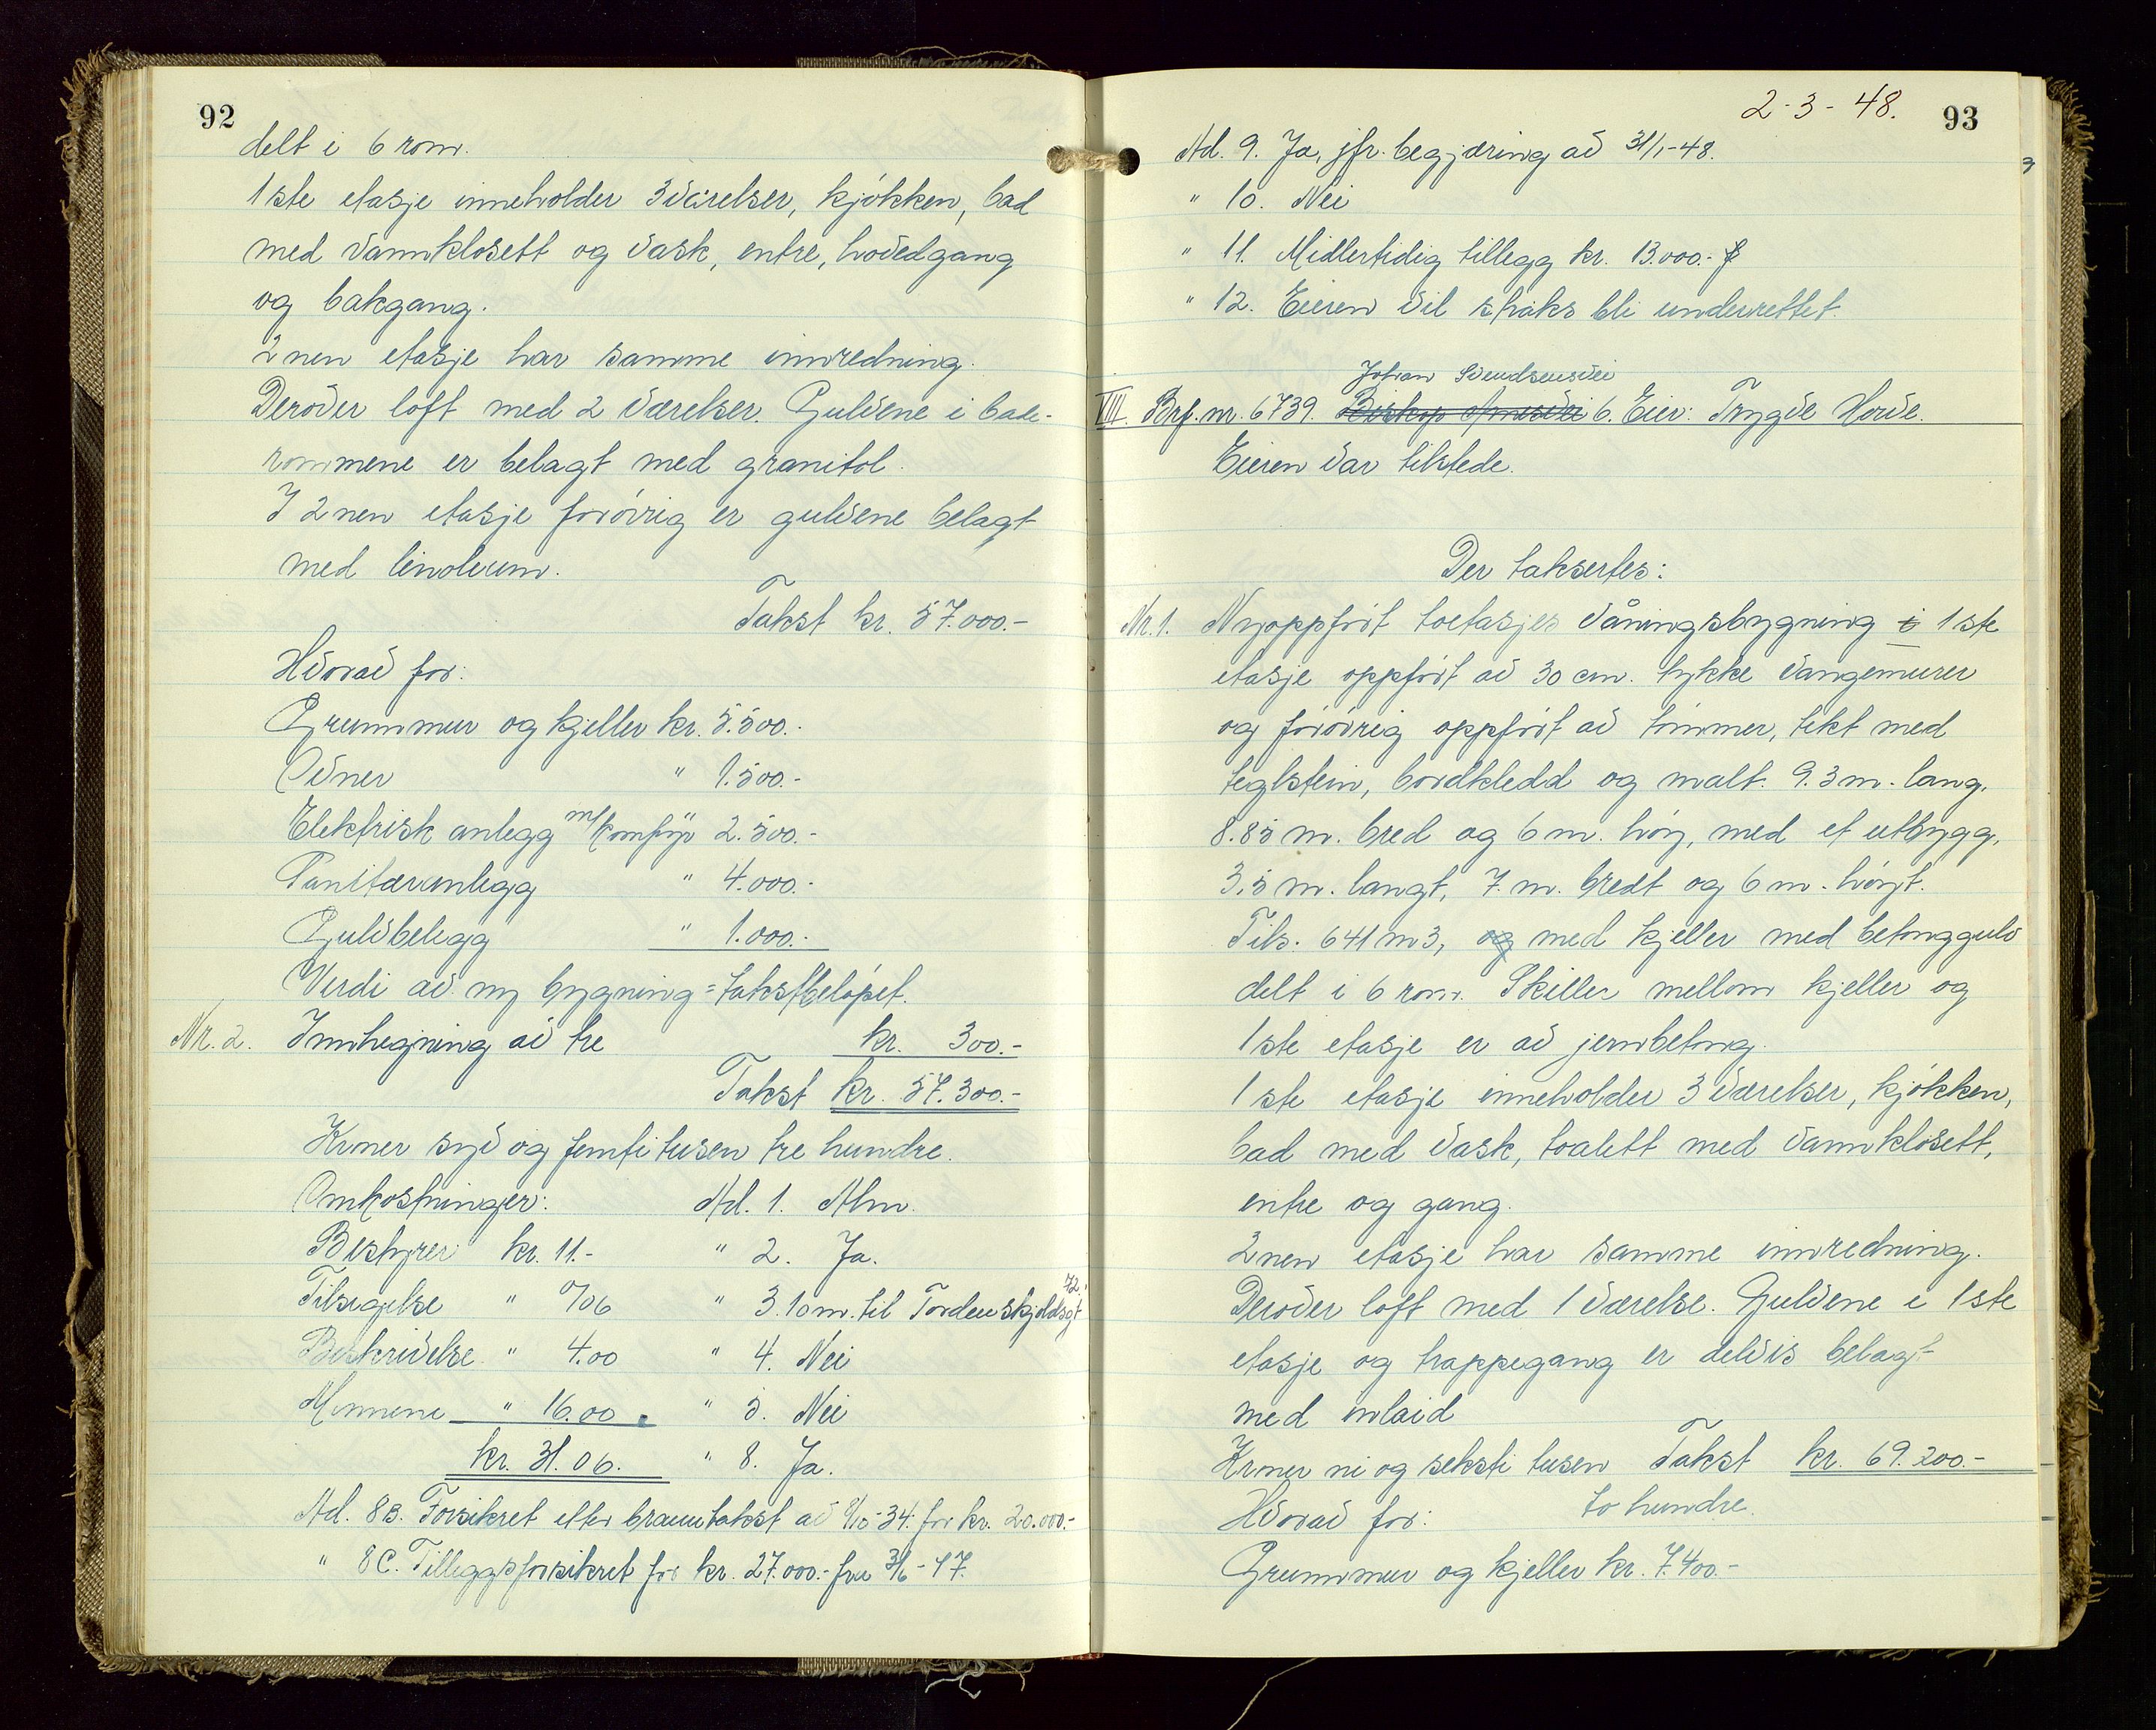 92
delt i 6 rom.
1ste etasje inneholder 3 værelser, kjøkken, bad
med vannklosett og vask, entre, hovedgang
og bakgang.
2nen etasje har samme innredning.
Derover loft med 2 værelser. Gulvene i bade-
rommene er belagt med granitol.
I 2nen etasje forøvrig er gulvene belagt
med linoleum.
Takst kr. 57.000.-
Hvorav for:
Grunnmur og kjeller kr. 5.500.-
Ovner " 1.500.-
Elektrisk anlegg m/komfyr " 2.500.-
Sanitæranlegg " 4.000.-
Gulvbelegg " 1.000.-
Verdi av ny bygning = takstbeløpet.
Nr. 2. Innhegning av tre kr. 300.-
Takst kr. 57.300.-
Kroner syv og femti tusen tre hundre.
Omkostninger: Ad. 1. Alm.
Bestyrer kr. 11.- " 2. Ja.
Tilsigelse " 0/06 " 3. 10 m. til Tordenskjoldsgt 72.
Beskrivelse " 4.00 " 4. Nei
Mennene " 16.00 " 5. Nei
kr. 31.06. " 8. Ja.
Ad. 8B. Forsikret etter branntakst av 8/10-34 for kr. 20.000.-
" 8C. Tilleggsforsikret for kr. 27.000.- fra 3/6-47.
2-3-48. 93
Ad. 9. Ja, jfr. begjæring av 31/1-48.
" 10. Nei
" 11. Midlertidig tillegg kr. 13.000.-
" 12. Eieren vil straks bli underrettet.
Johan Svendsensvei
VIII. Brf. nr. 6739. Biskop Arnesvei 6. Eier: Trygve Horve.
Eieren var tilstede.
Der taksertes:
Nr. 1. Nyoppført toetasjes våningsbygning i 1ste
etasje oppført av 30 cm. tykke vangemurer
og forøvrig oppført av tømmer, tekt med
teglstein, bordkledd og malt. 9.3 m. lang,
8.85 m. bred og 6 m. høy, med et utbygg,
3,5 m. langt, 7. m. bredt og 6 m. høyt.
Tils. 641 m3, og med kjeller med betonggulv
delt i 6 rom. Skiller mellom kjeller og
1ste etasje er av jernbetong.
1ste etasje inneholder 3 værelser, kjøkken,
bad med vask, toalett med vannklosett,
entre og gang.
2nen etasje har samme innredning.
Derover loft med 1 værelse. Gulvene i 1ste
etasje og trappegang er delvis belagt
med inlaid
Kroner ni og seksti tusen Takst kr. 69.200.-
to hundre.
Hvorav for:
Grunnmur og kjeller kr. 7.400.-